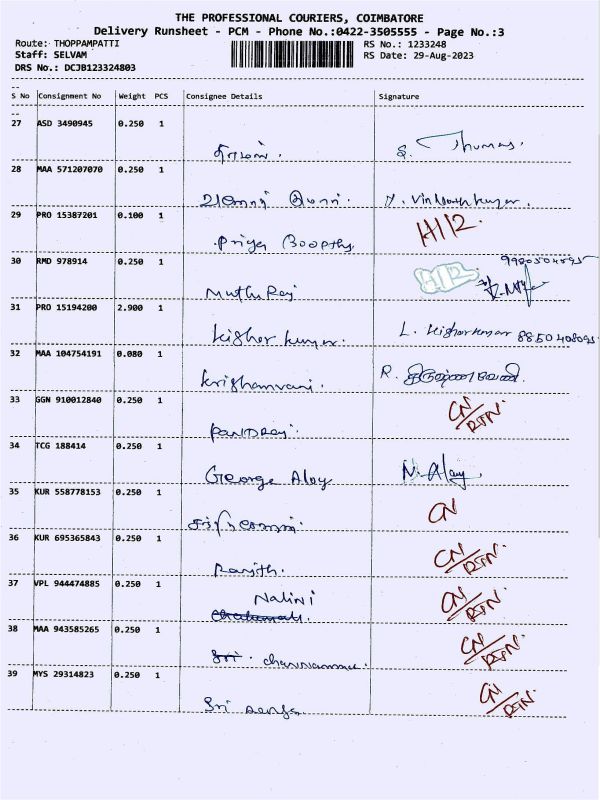 THE PROFESSIONAL COURIERS, COIMBATORE
Delivery Runsheet - PCM - Phone No.:0422-3505555 - Page No.:3
Route: THOPPAMPATTI
RS No.: 1233248
Staff: SELVAM
RS Date: 29-Aug-2023
DRS No.: DCJB123324803
S No Consignment No Weight PCS Consignee Details Signature
27 ASD 3490945 0.250 1
S. Thomas.
28 MAA 571207070 0.250 1
29 PRO 15387201 0.100 1
Priya Boopthy
30 RMD 978914 0.250 1
MuthuRaj
31 PRO 15194200 2.900 1
Kishor kumar. L. Kishorkumar
32 MAA 104754191 0.080 1
R.
33 GGN 910012840 0.250 1
CN/RTN.
34 TCG 188414 0.250 1
George Aloy N. Aloy.
35 KUR 558778153 0.250 1
CN
36 KUR 695365843 0.250 1
Ranjith. CN/RTN.
37 VPL 944474885 0.250 1
Nalini CN/RTN.
38 MAA 943585265 0.250 1
CN/RTN.
39 MYS 29314823 0.250 1
Sri CN/RTN.